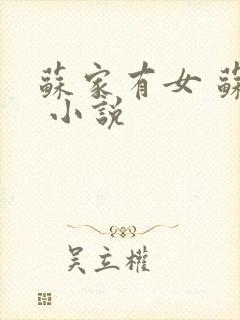 蘇家有女 蘇
小說
吳立權